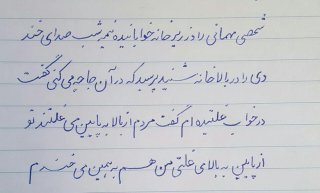 شخصی مهمانی را در زیر خانه خوابانیده نیمه شب صدای خند
دی را در بالا خانه شنید پرسید که در آن جا چه می کنی گفت
در خواب غلتیده ام گفت مردم از بالا به پایین می غلتند تو
از پایین به بالا می غلتی من هم به همین می خندم